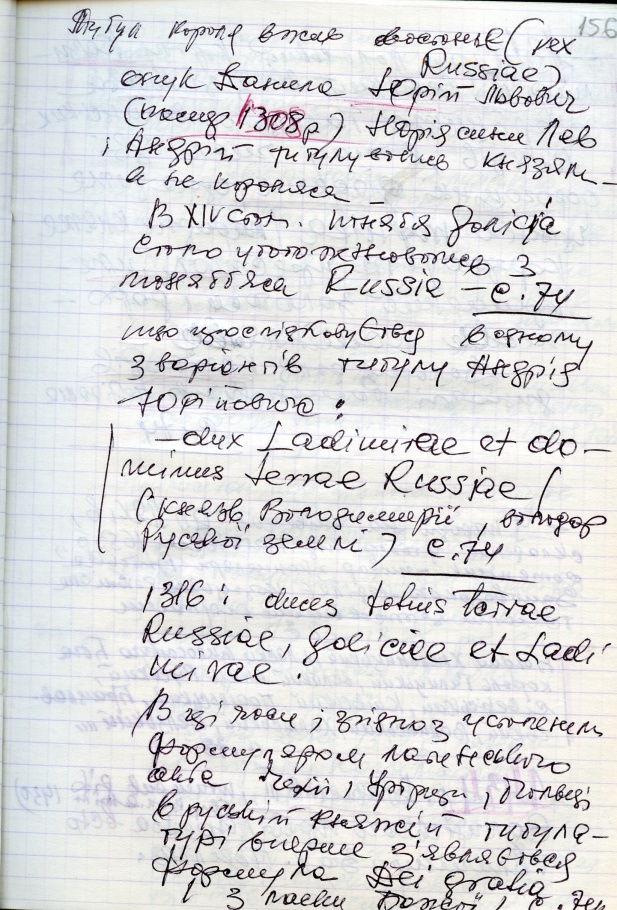 156
Титул короля вжив востаннє (rex
Russiae)
онук Данила Юрій Львович
(помер 1308р) Юрія сини Лев
і Андрій титулувались князями
а не королями –
В XIV стол. поняття Галіція
стало утотожнюватись з
поняттями Russia – с. 74
що прослідковується в одному
з варіантів титулу Андрія
Юрійовича :
– dux Ladimirae et do–
minus terrae Russiae (
(князь Володимирії, володар
Руської землі) с. 74
1316: duces totius terrae
Russiae, Galiciae et Ladi
mirae.
В ці часи і згідно з усталеним
формуляром латинського
акта Чехії, Угорщи, Польщі
в руській княжій титула–
турі вперше з'являється
формула Dei gratia
з ласки Божої, с. 74